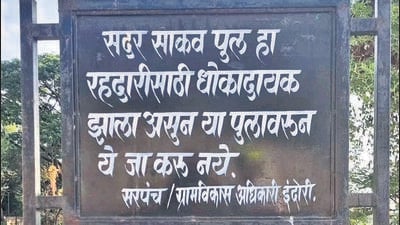 सदर साकव पुल हा
रहदारीसाठी धोकादायक
झाला असुन या पुलावरून
ये जा करू नये.
सरपंच / ग्रामविकास अधिकारी इंदोरी.